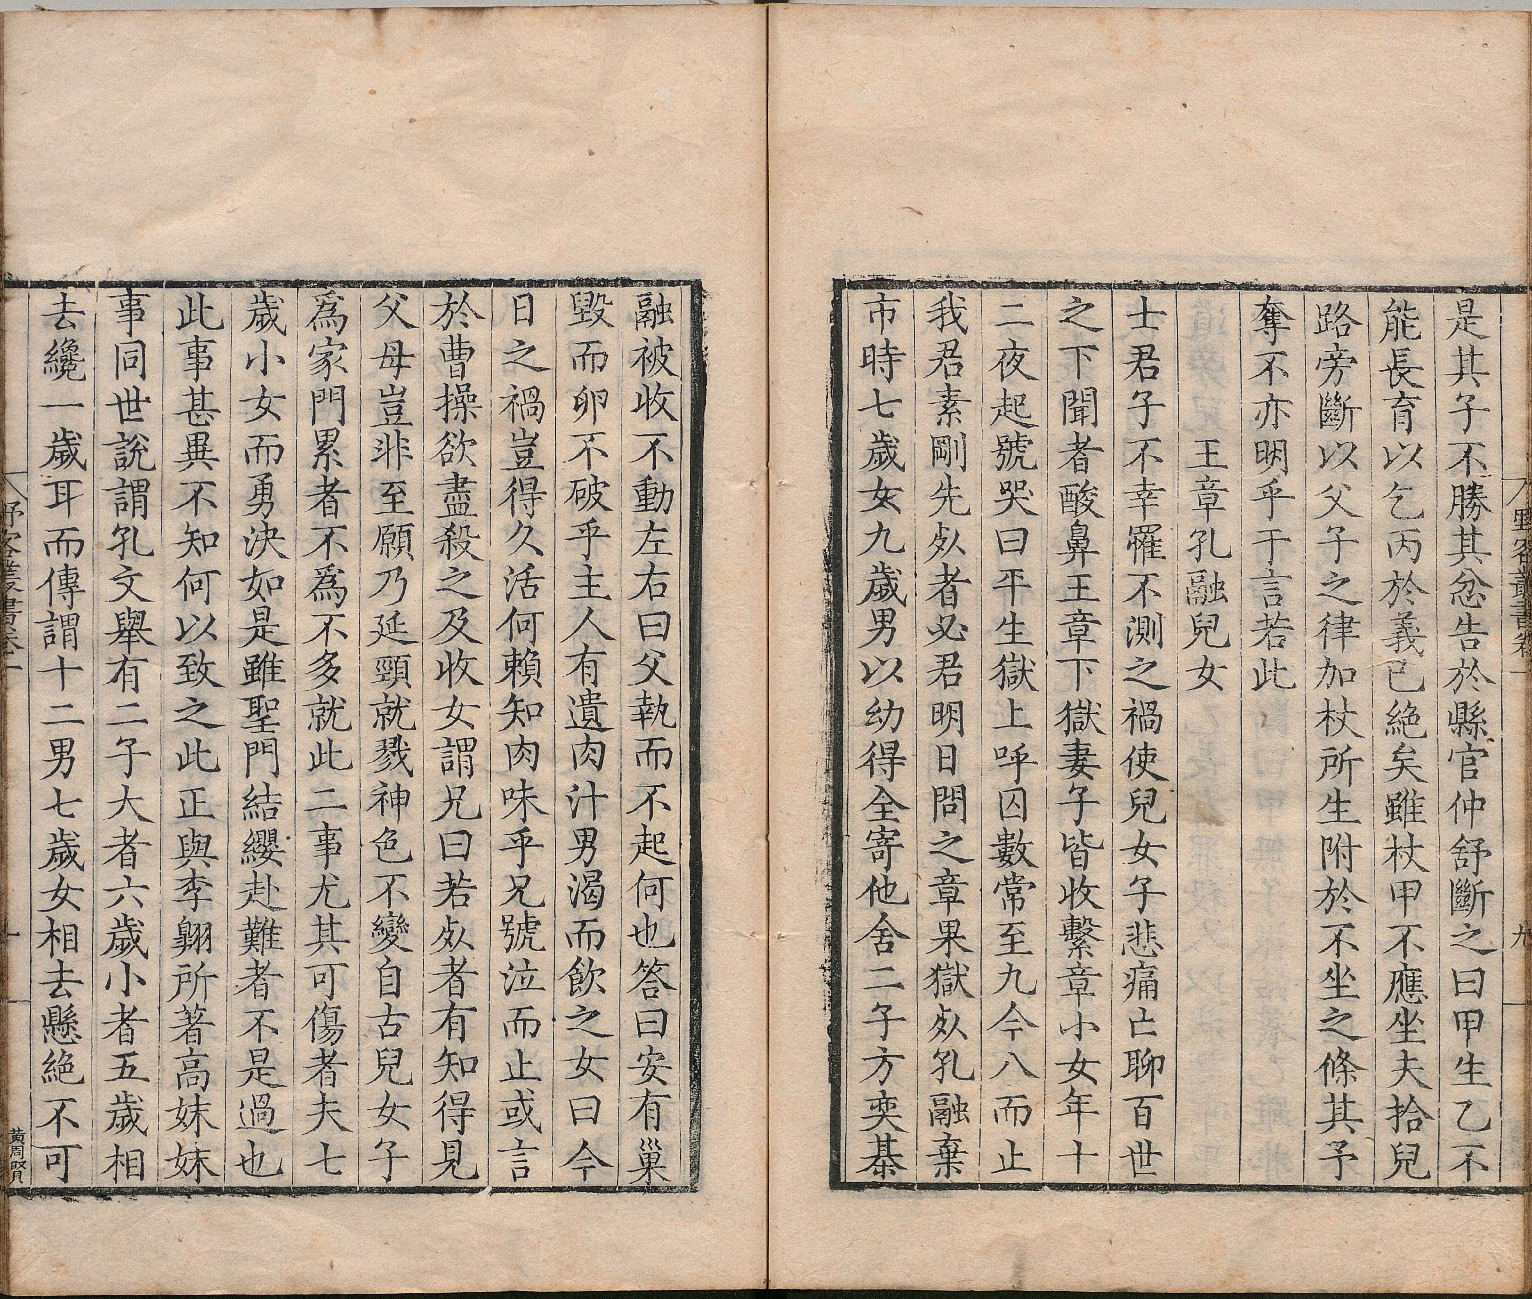 野客叢書卷一
九
是其子不勝其忿告於縣官仲舒斷之曰甲生乙不
能長育以乞丙於義已絶矣雖杖甲不應坐夫拾兒
路旁斷以父子之律加杖所生附於不坐之條其予
奪不亦明乎于言若此
王章孔融兒女
士君子不幸罹不測之禍使兒女子悲痛亡聊百世
之下聞者酸鼻王章下獄妻子皆收繫章小女年十
二夜起號哭曰平生獄上呼囚數常至九今八而止
我君素剛先𣦸者必君明日問之章果獄𣦸孔融棄
市時七歲女九歲男以幼得全寄他舍二子方奕棊
融被收不動左右曰父執而不起何也答曰安有巢
毀而卵不破乎主人有遺肉汁男渴而飲之女曰今
日之禍豈得久活何賴知肉味乎兄號泣而止或言
於曹操欲盡殺之及收女謂兄曰若𣦸者有知得見
父母豈非至願乃延頸就戮神色不變自古兒女子
爲家門累者不爲不多就此二事尤其可傷者夫七
歲小女而勇決如是雖聖門結纓赴難者不是過也
此事甚異不知何以致之此正與李翺所著高妹妹
事同世說謂孔文舉有二子大者六歲小者五歲相
去纔一歲耳而傳謂十二男七歲女相去懸絶不可
野客叢書卷一
十
黃周賢